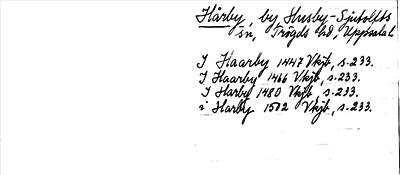 Hårby, by Husby-Sjutolfts
sn, Trögds hd, Uppsala l
I Haarby 1447 Vkjb, s. 233.
I Haarby 1466 Vkjb, s. 233.
I Harby 1480 Vkjb, s. 233.
i Harby 1502 Vkjb, s. 233.